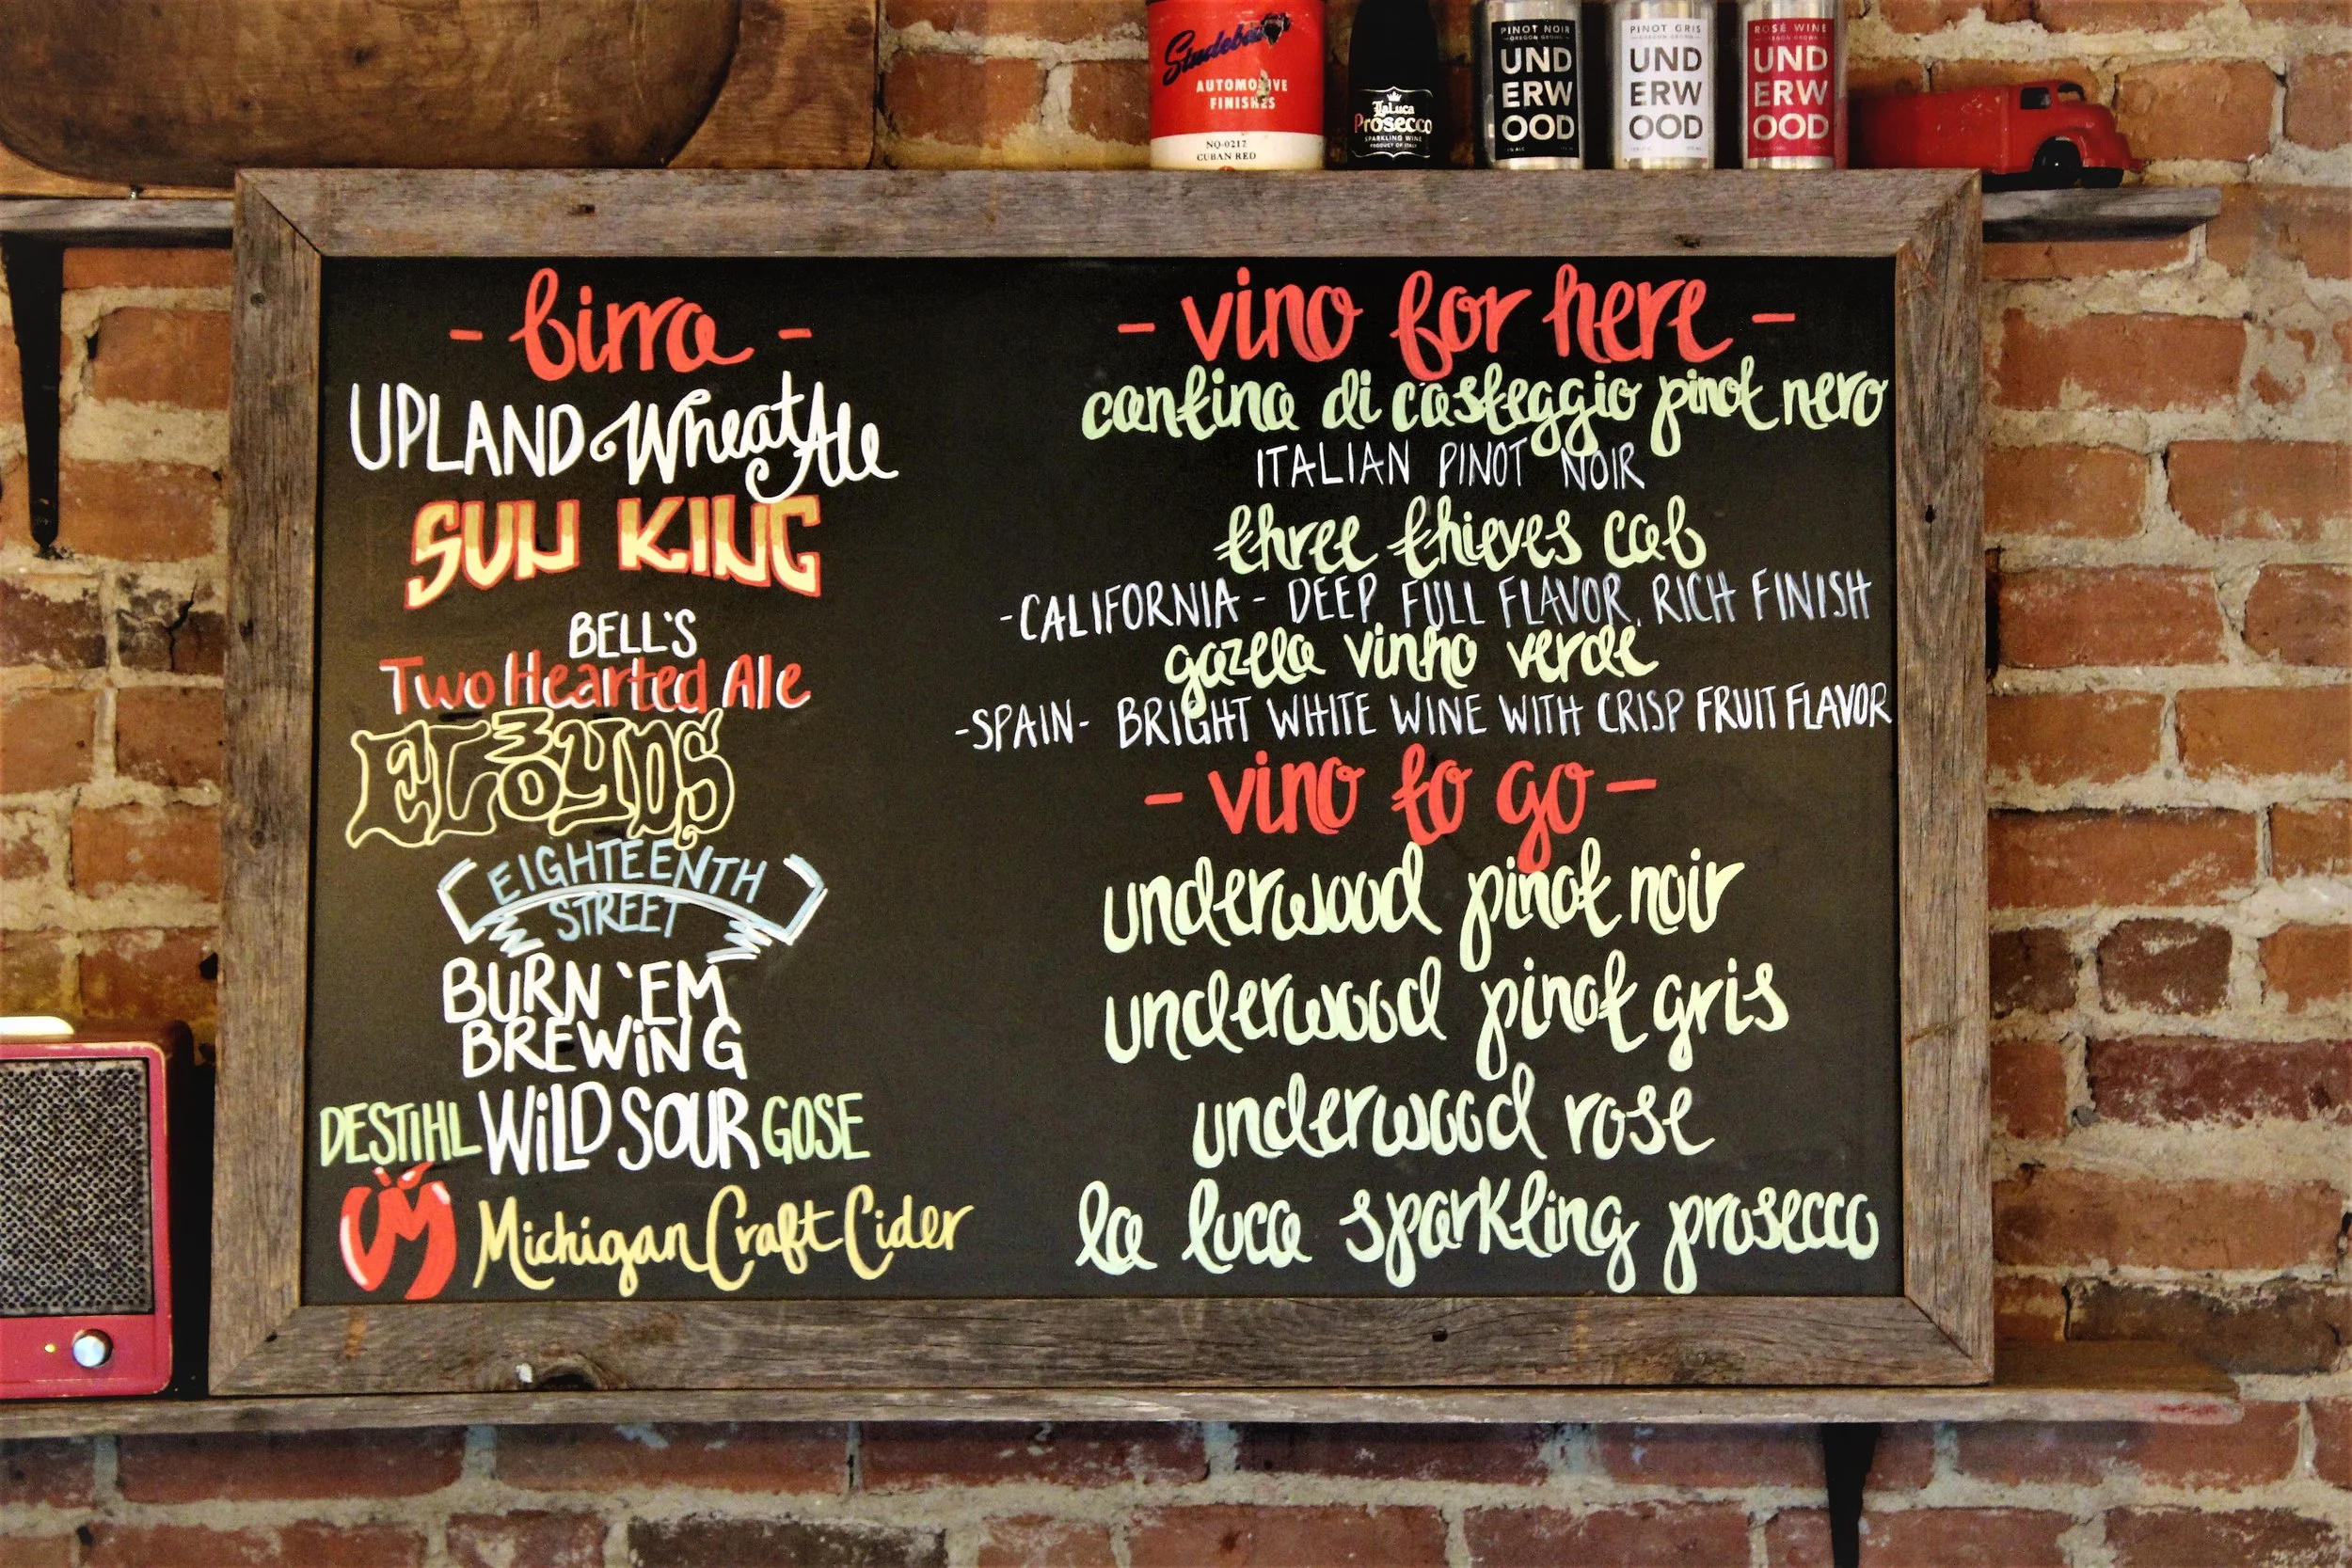 Studebaker
AUTOMOTIVE
FINISHES
NQ-0217
CUBAN RED
LaLuca
Prosecco
SPARKLING WINE
PRODUCT OF ITALY
PINOT NOIR
OREGON GROWN
UND
ERW
OOD
PINOT GRIS
OREGON GROWN
UND
ERW
OOD
ROSÉ WINE
OREGON GROWN
UND
ERW
OOD
- birra -
UPLAND Wheat Ale
SUN KING
BELL'S
Two Hearted Ale
3 FLOYDS
EIGHTEENTH
STREET
BURN 'EM
BREWING
DESTIHL WILD SOUR GOSE
VM Michigan Craft Cider
- vino for here -
cantina di casteggio pinot nero
ITALIAN PINOT NOIR
three thieves cab
-CALIFORNIA- DEEP FULL FLAVOR, RICH FINISH
gazela vinho verde
-SPAIN- BRIGHT WHITE WINE WITH CRISP FRUIT FLAVOR
- vino to go -
underwood pinot noir
underwood pinot gris
underwood rose
la luca sparkling prosecco